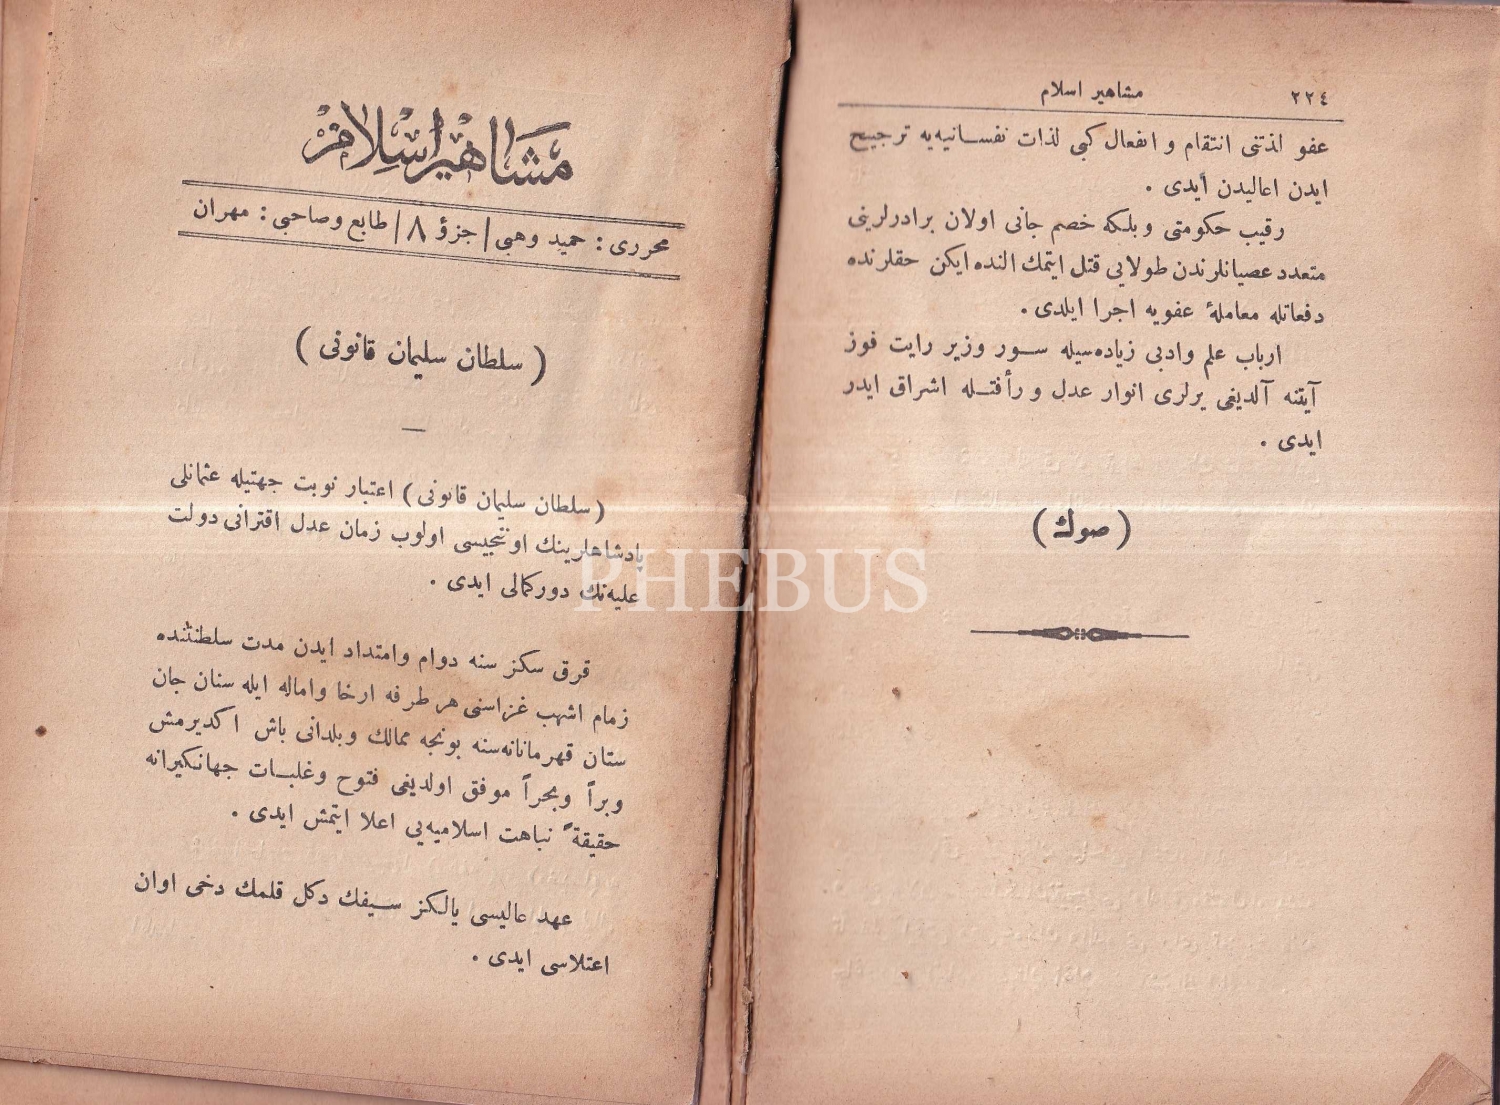 ٢٢٤ مشاهیر اسلام
عفو لذتنی انتقام و انفعال کبی لذات نفسـانیه‌یه ترجیح
ایدن اعالیدن ایدی .
رقیب حکومتی وبلکه خصم جانی اولان برادرلرینی
متعدد عصیانلرندن طولایی قتل ایتمك النده ایکن حقلرنده
دفعاتله معاملۀ عفویه اجرا ایلدی .
ارباب علم وادبی زیاده‌سیله سـور وزیر رایت فوز
آیتنه آلدیغی یرلری انوار عدل و رأفتـله اشراق ایدر
ایدی .
( صوك )
مشاهیر اسلام
محرری : حمید وهبی / جزؤ ٨ / طابع وصاحبی : مهران
( سلطان سلیمان قانونی )
( سلطان سلیمان قانونی ) اعتبار نوبت جهتیله عثمانلی
پادشاهلرینك اوننجیسی اولوب زمان عدل اقترانی دولت
علیه‌نك دورکمالی ایدی .
قرق سکز سنه دوام وامتداد ایدن مدت سلطنتنده
زمام اشهب غزاسنی هر طرفه ارخا واماله ایله سنان جان
ستان قهرمانانه‌سنه بونجه ممالك وبلدانی باش اکدیرمش
وبراً وبحراً موفق اولدیغی فتوح وغلبـات جهانکیرانه
حقیقةً نباهت اسلامیه‌یی اعلا ایتمش ایدی .
عهد عالیسی یالکز سـیفك دکل قلمك دخی اوان
اعتلاسی ایدی .
PHEBUS